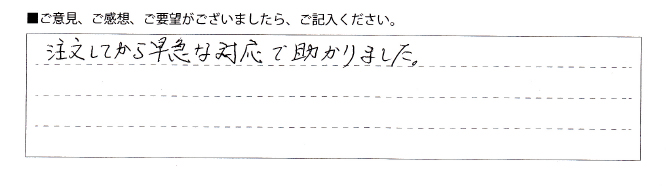 ■ご意見、ご感想、ご要望がございましたら、ご記入ください。
注文してから早急な対応で助かりました。